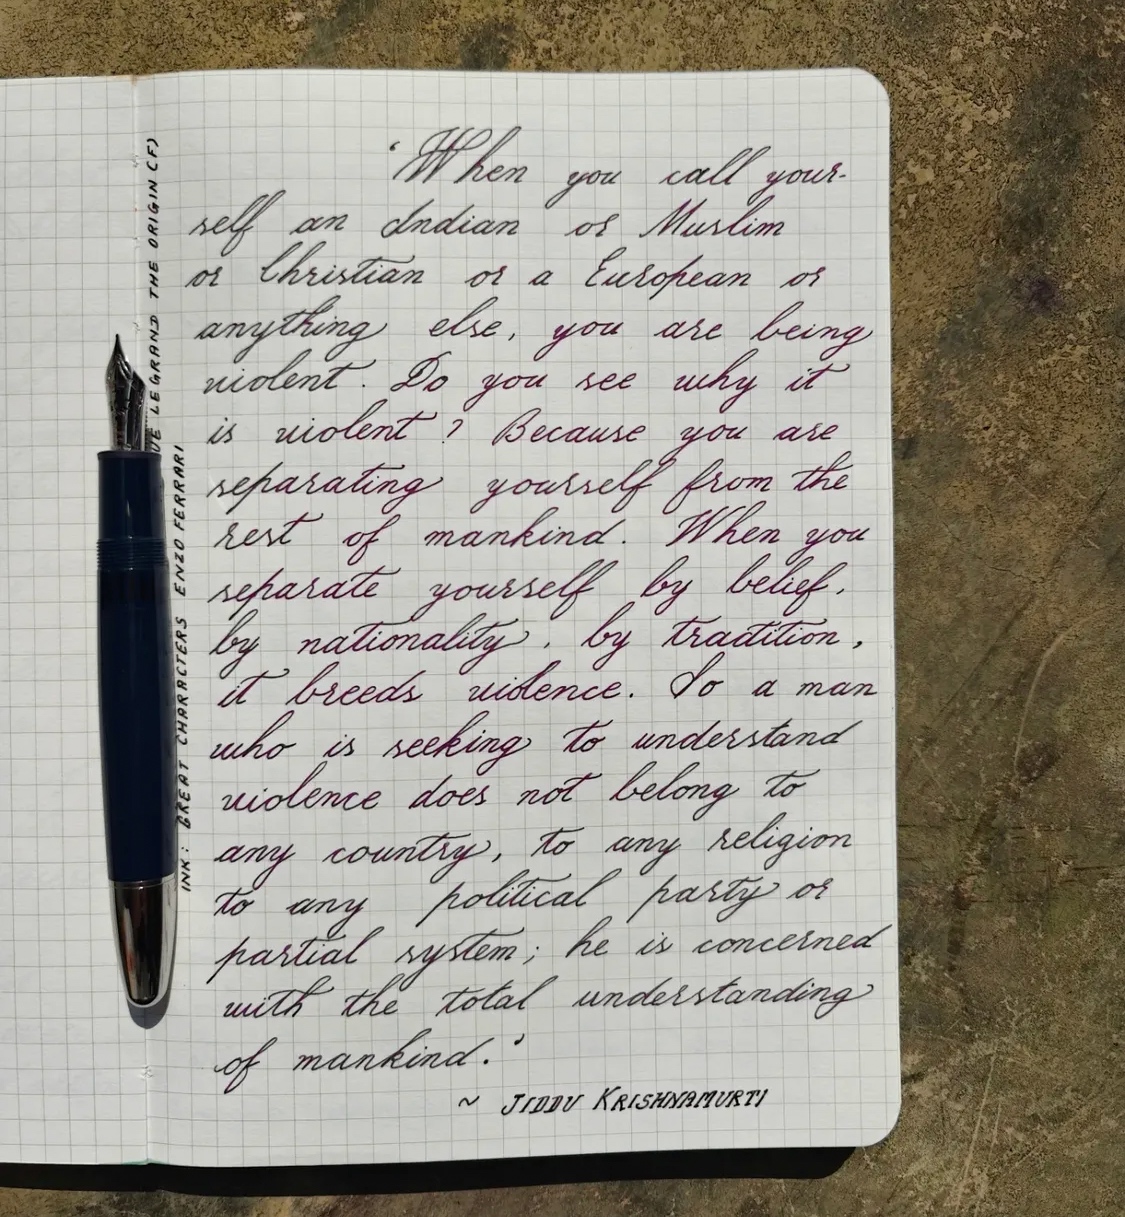 'When you call your-
self an Indian or Muslim
or Christian or a European or
anything else, you are being
violent. Do you see why it
is violent? Because you are
separating yourself from the
rest of mankind. When you
separate yourself by belief,
by nationality, by tradition,
it breeds violence. So a man
who is seeking to understand
violence does not belong to
any country, to any religion
to any political party or
partial system; he is concerned
with the total understanding
of mankind.'
~ JIDDU KRISHNAMURTI
LEGRAND THE ORIGIN (F)
INK: GREAT CHARACTERS ENZO FERRARI